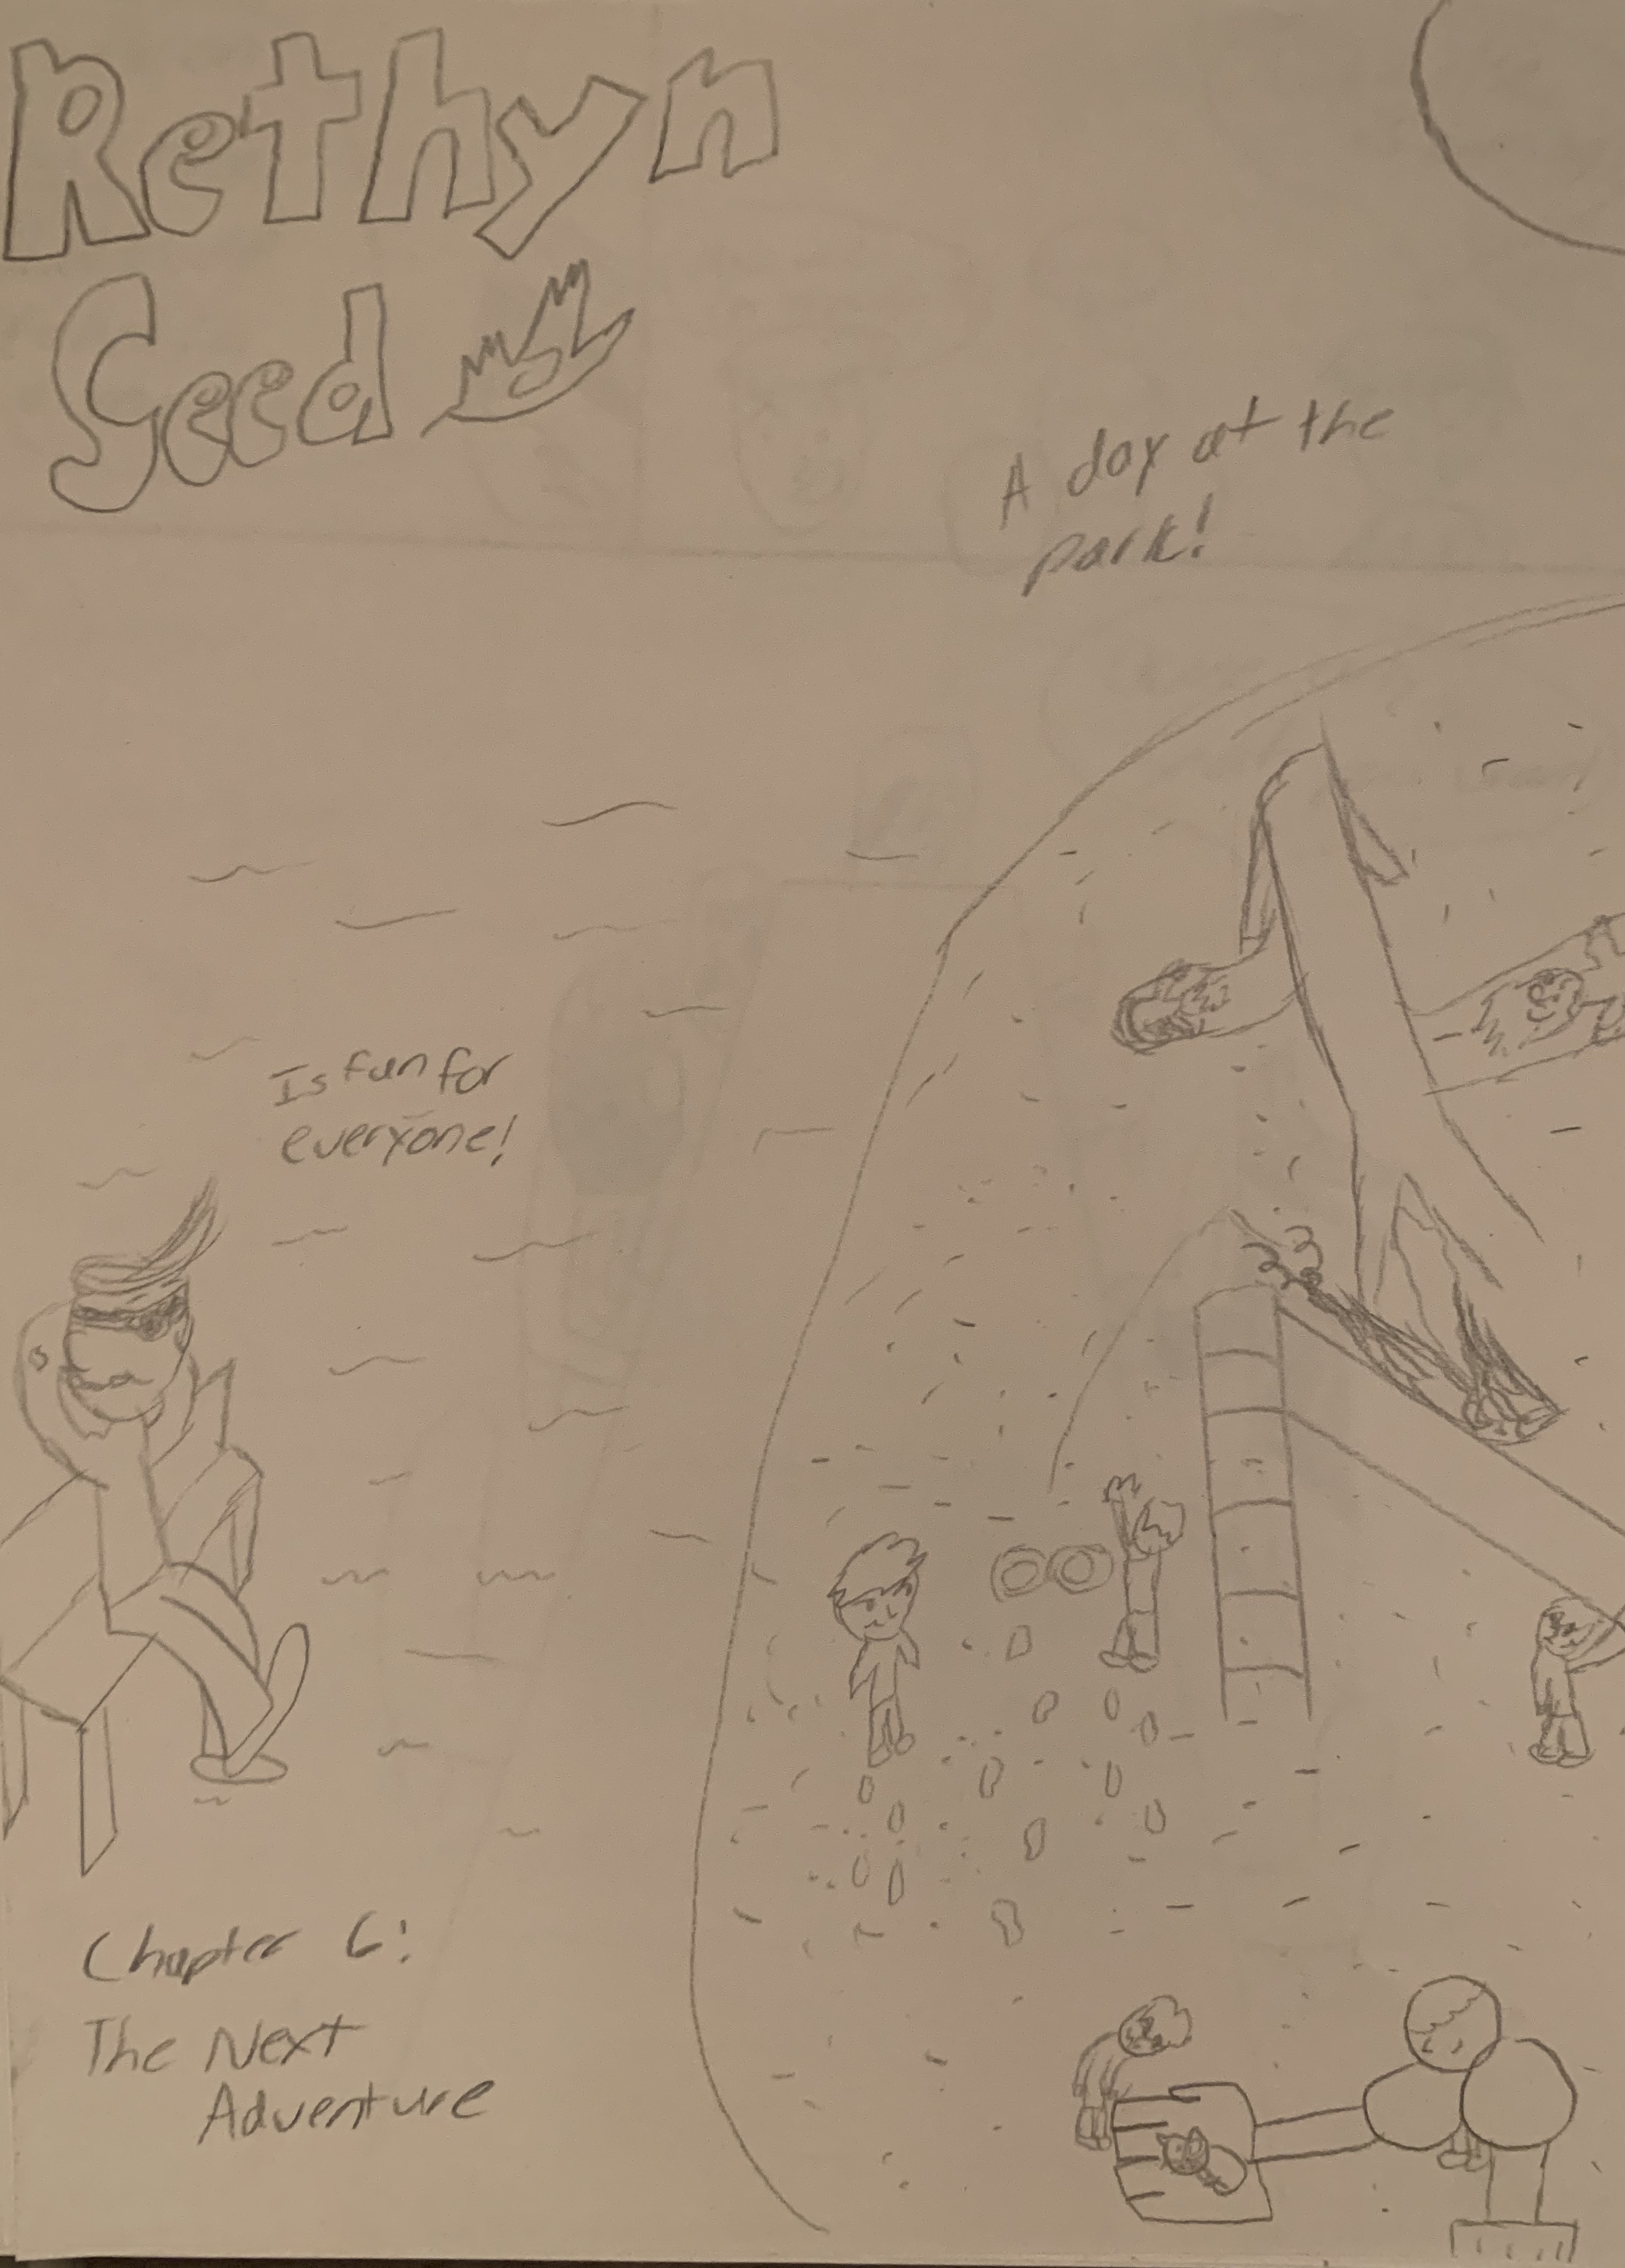 Rethyn
Seed
A day at the
park!
Is fun for
everyone!
Chapter 6:
The Next
Adventure